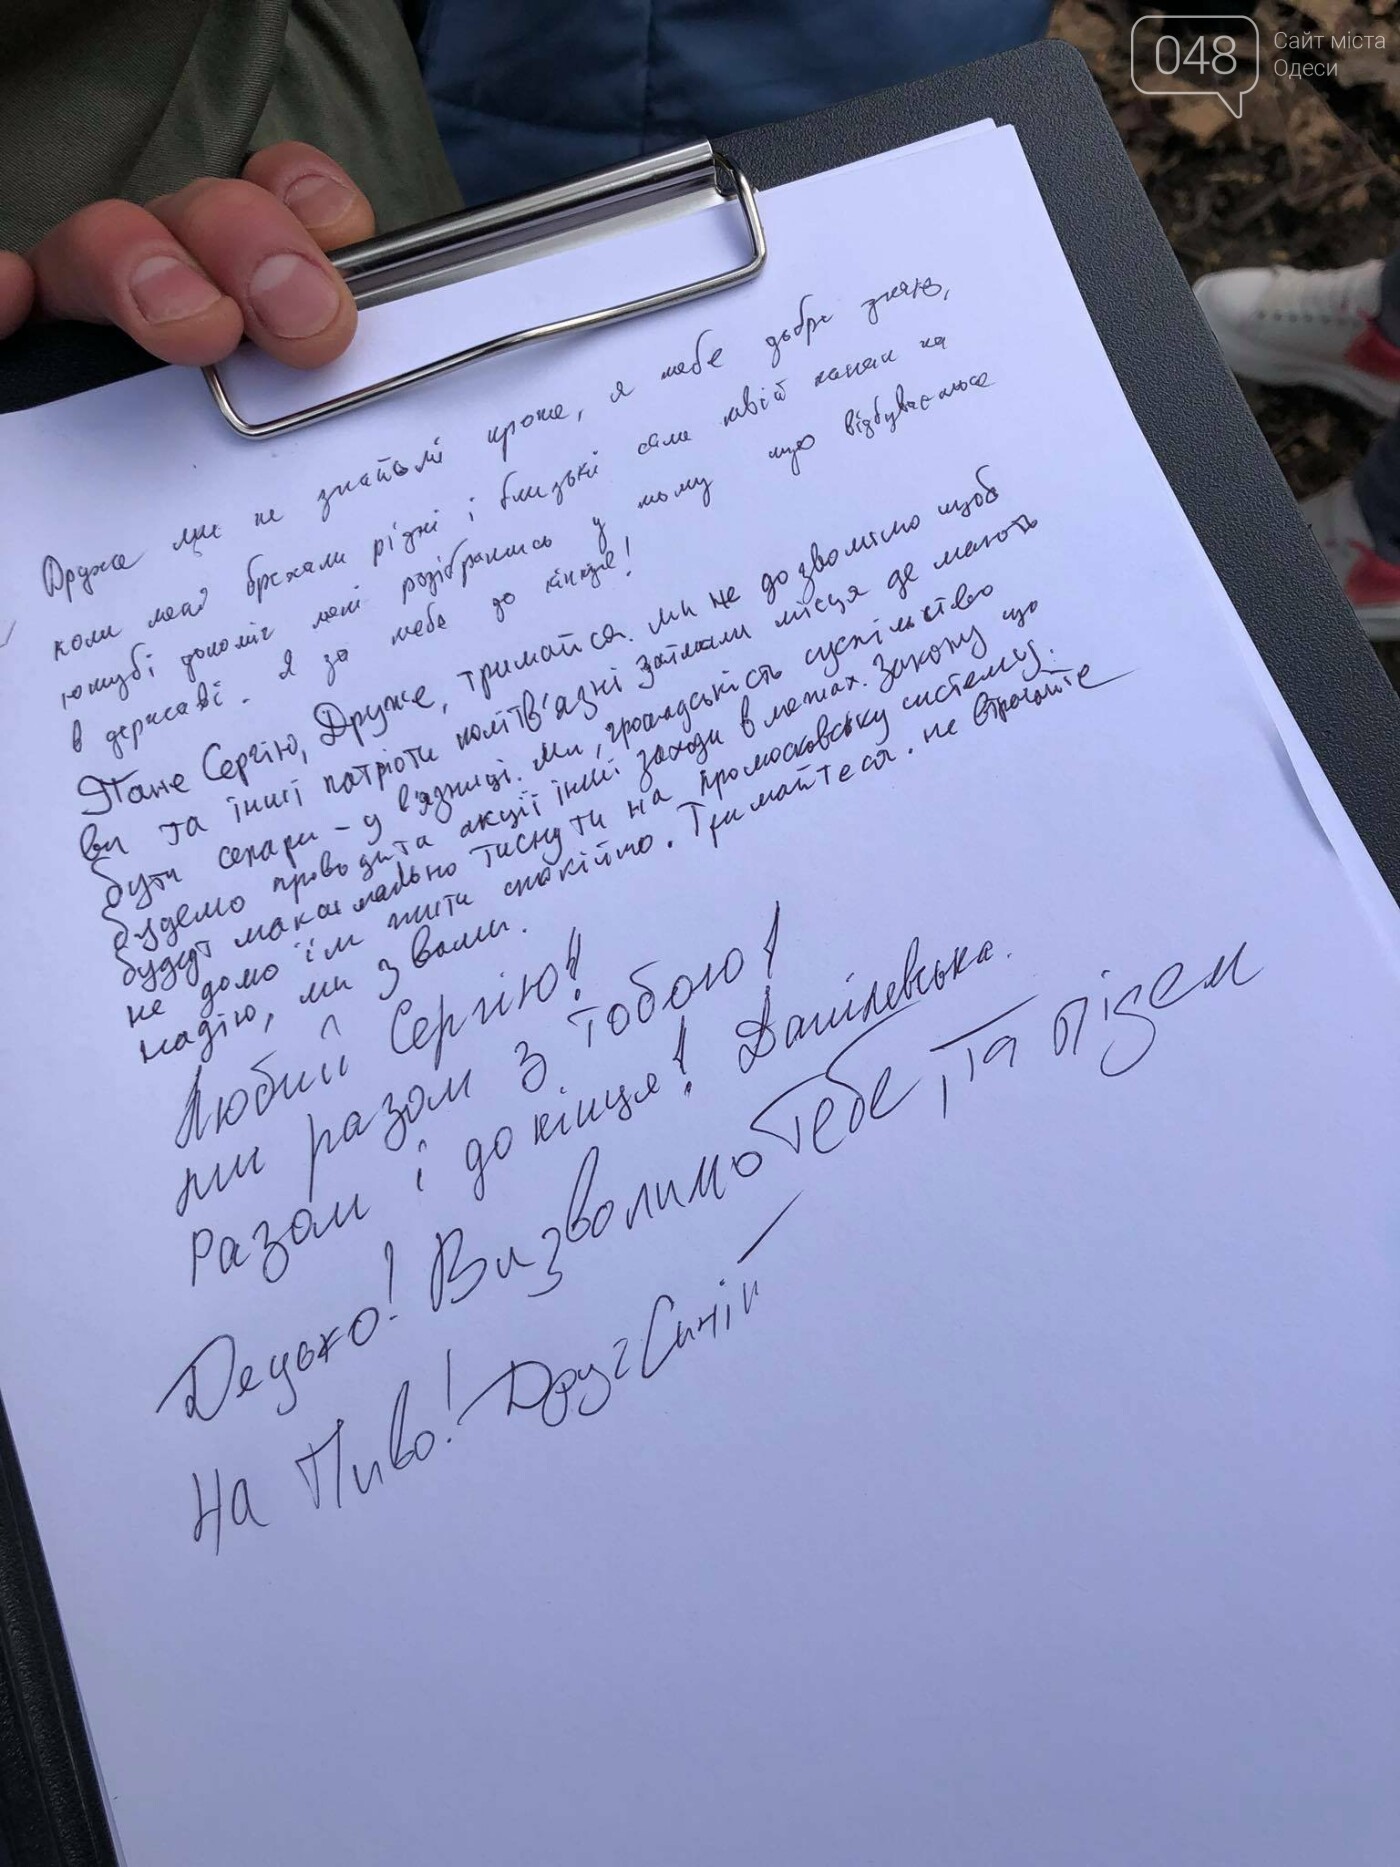 048
Сайт міста
Одеси
Друже ми не знайомі проте, я тебе добре знаю,
коли мені брехали різні і близькі саме твій канал на
ютубі допоміг мені розібратись у тому що відбувається
в державі. Я за тебе до кінця!
Пане Сергію, Друже, тримайся. Ми не дозволимо щоб
ви та інші патріоти політв'язні займали місця де мають
бути сепари - у в'язниці. Ми, громадськість суспільство
будемо проводити акції інші заходи в межах Закону що
будут максимально тиснути на промосковську систему.
не дамо їм жити спокійно. Тримайтеся. не втрачайте
надію, ми з вами.
Любий Сергію!
ми разом з тобою!
Разом і до кінця! Данілевська.
Друже! Визволимо Тебе, та підем
На Пиво! Друг Синій